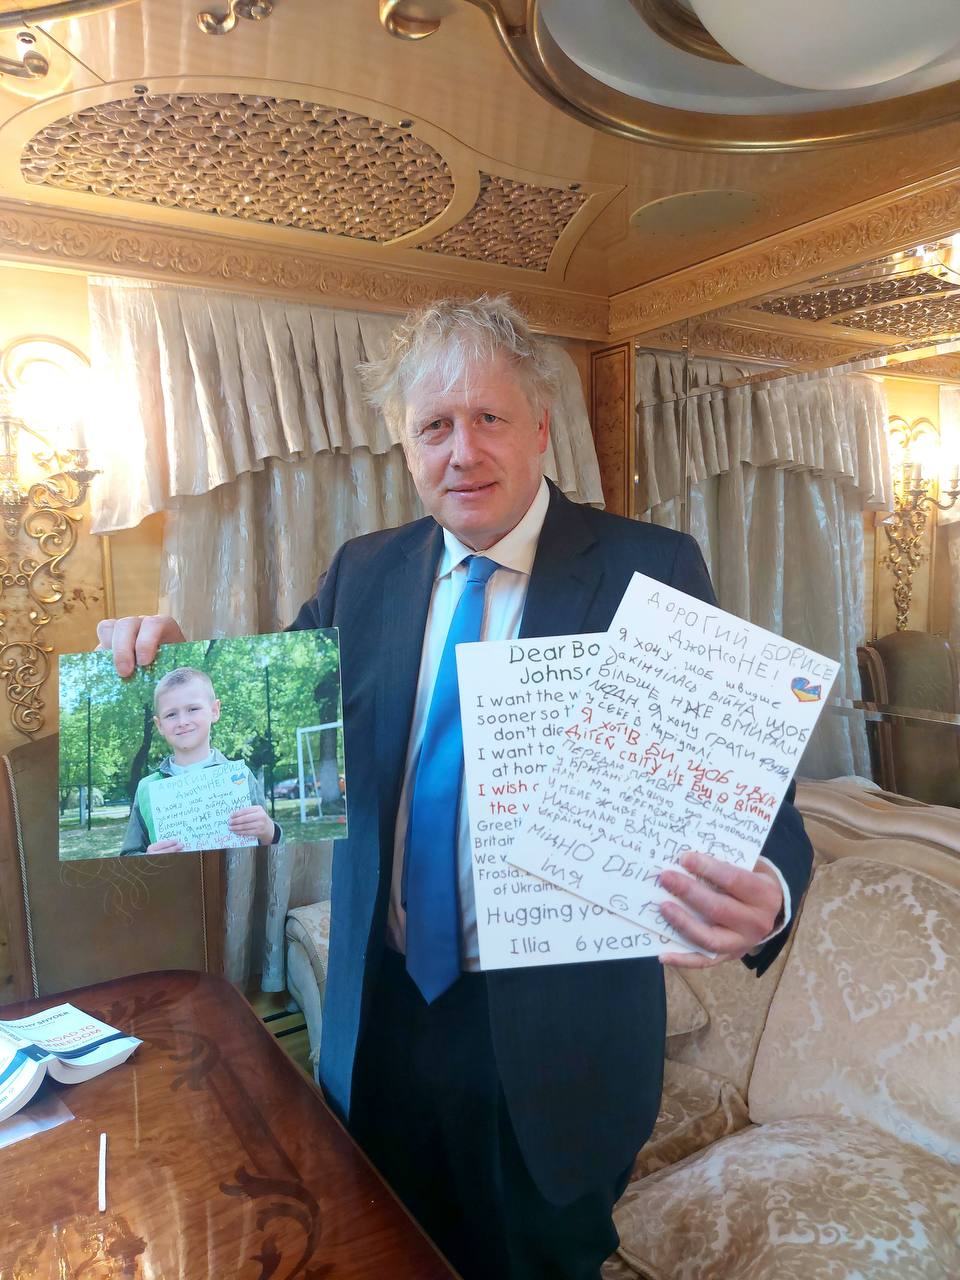 ДОРОГИЙ БОРИСЕ
ДЖОНСОНЕ!
Я ХОЧУ, ЩОБ ШВИДШЕ
ЗАКІНЧІЛАСЬ ВІЙНА, ЩОБ
БІЛЬШЕ НЖЕ ВМИРАЛИ
ЛЮДИ. Я ХОЧУ ГРАТИ
У СЕБЕ В
Я ХОТІВ БИ, ЩОБ У ВСІХ
ДІТЕЙ СВІТУ НЕ БУЛО ВІЙНИ
ПЕРЕДАЮ ПРИВІТ ВСІМ ДІТЯМ
У БРИТАНІЇ
НАМ. МИ ПЕРЕМОЖЕМ!
У МЕНЕ ЖИВЕ КІШКА ФРОСЯ
НАДСИЛАЮ ВАМ
УКРАЇНИ, ЯКИЙ Я
МІЦНО
ІЛЯ 6
Dear Bo
Johns
I want the w
sooner so t
don't die
I want to
at hom
I wish
the
Greeti
Britain
We
Frosia.
of Ukraine
Hugging yo
Illia 6 years o
ДОРОГИЙ БОРИСЕ
ДЖОНСОНЕ!
Я ХОЧУ, ЩОБ ШВИДШЕ
ЗАКІНЧІЛАСЬ ВІЙНА, ЩОБ
БІЛЬШЕ НЖЕ ВМИРАЛИ
ЛЮДИ. Я ХОЧУ ГРАТИ
У СЕБЕ В
SNYDER
ROAD TO
FREEDOM